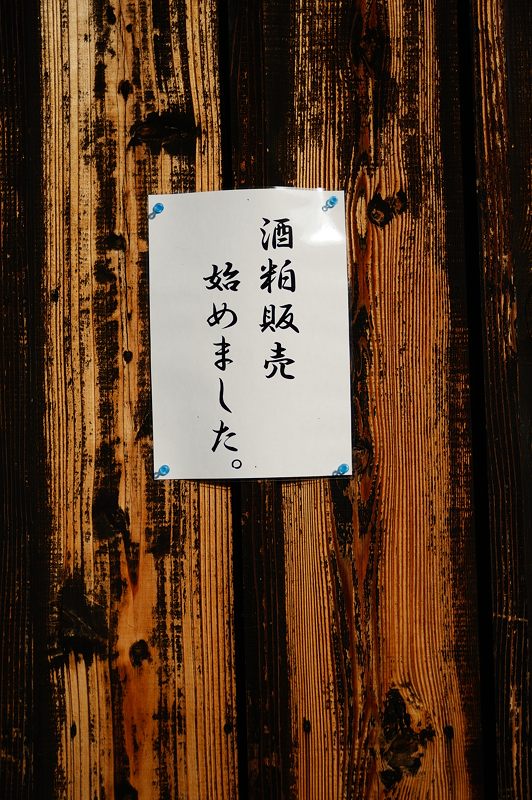 酒粕販売
始めました。